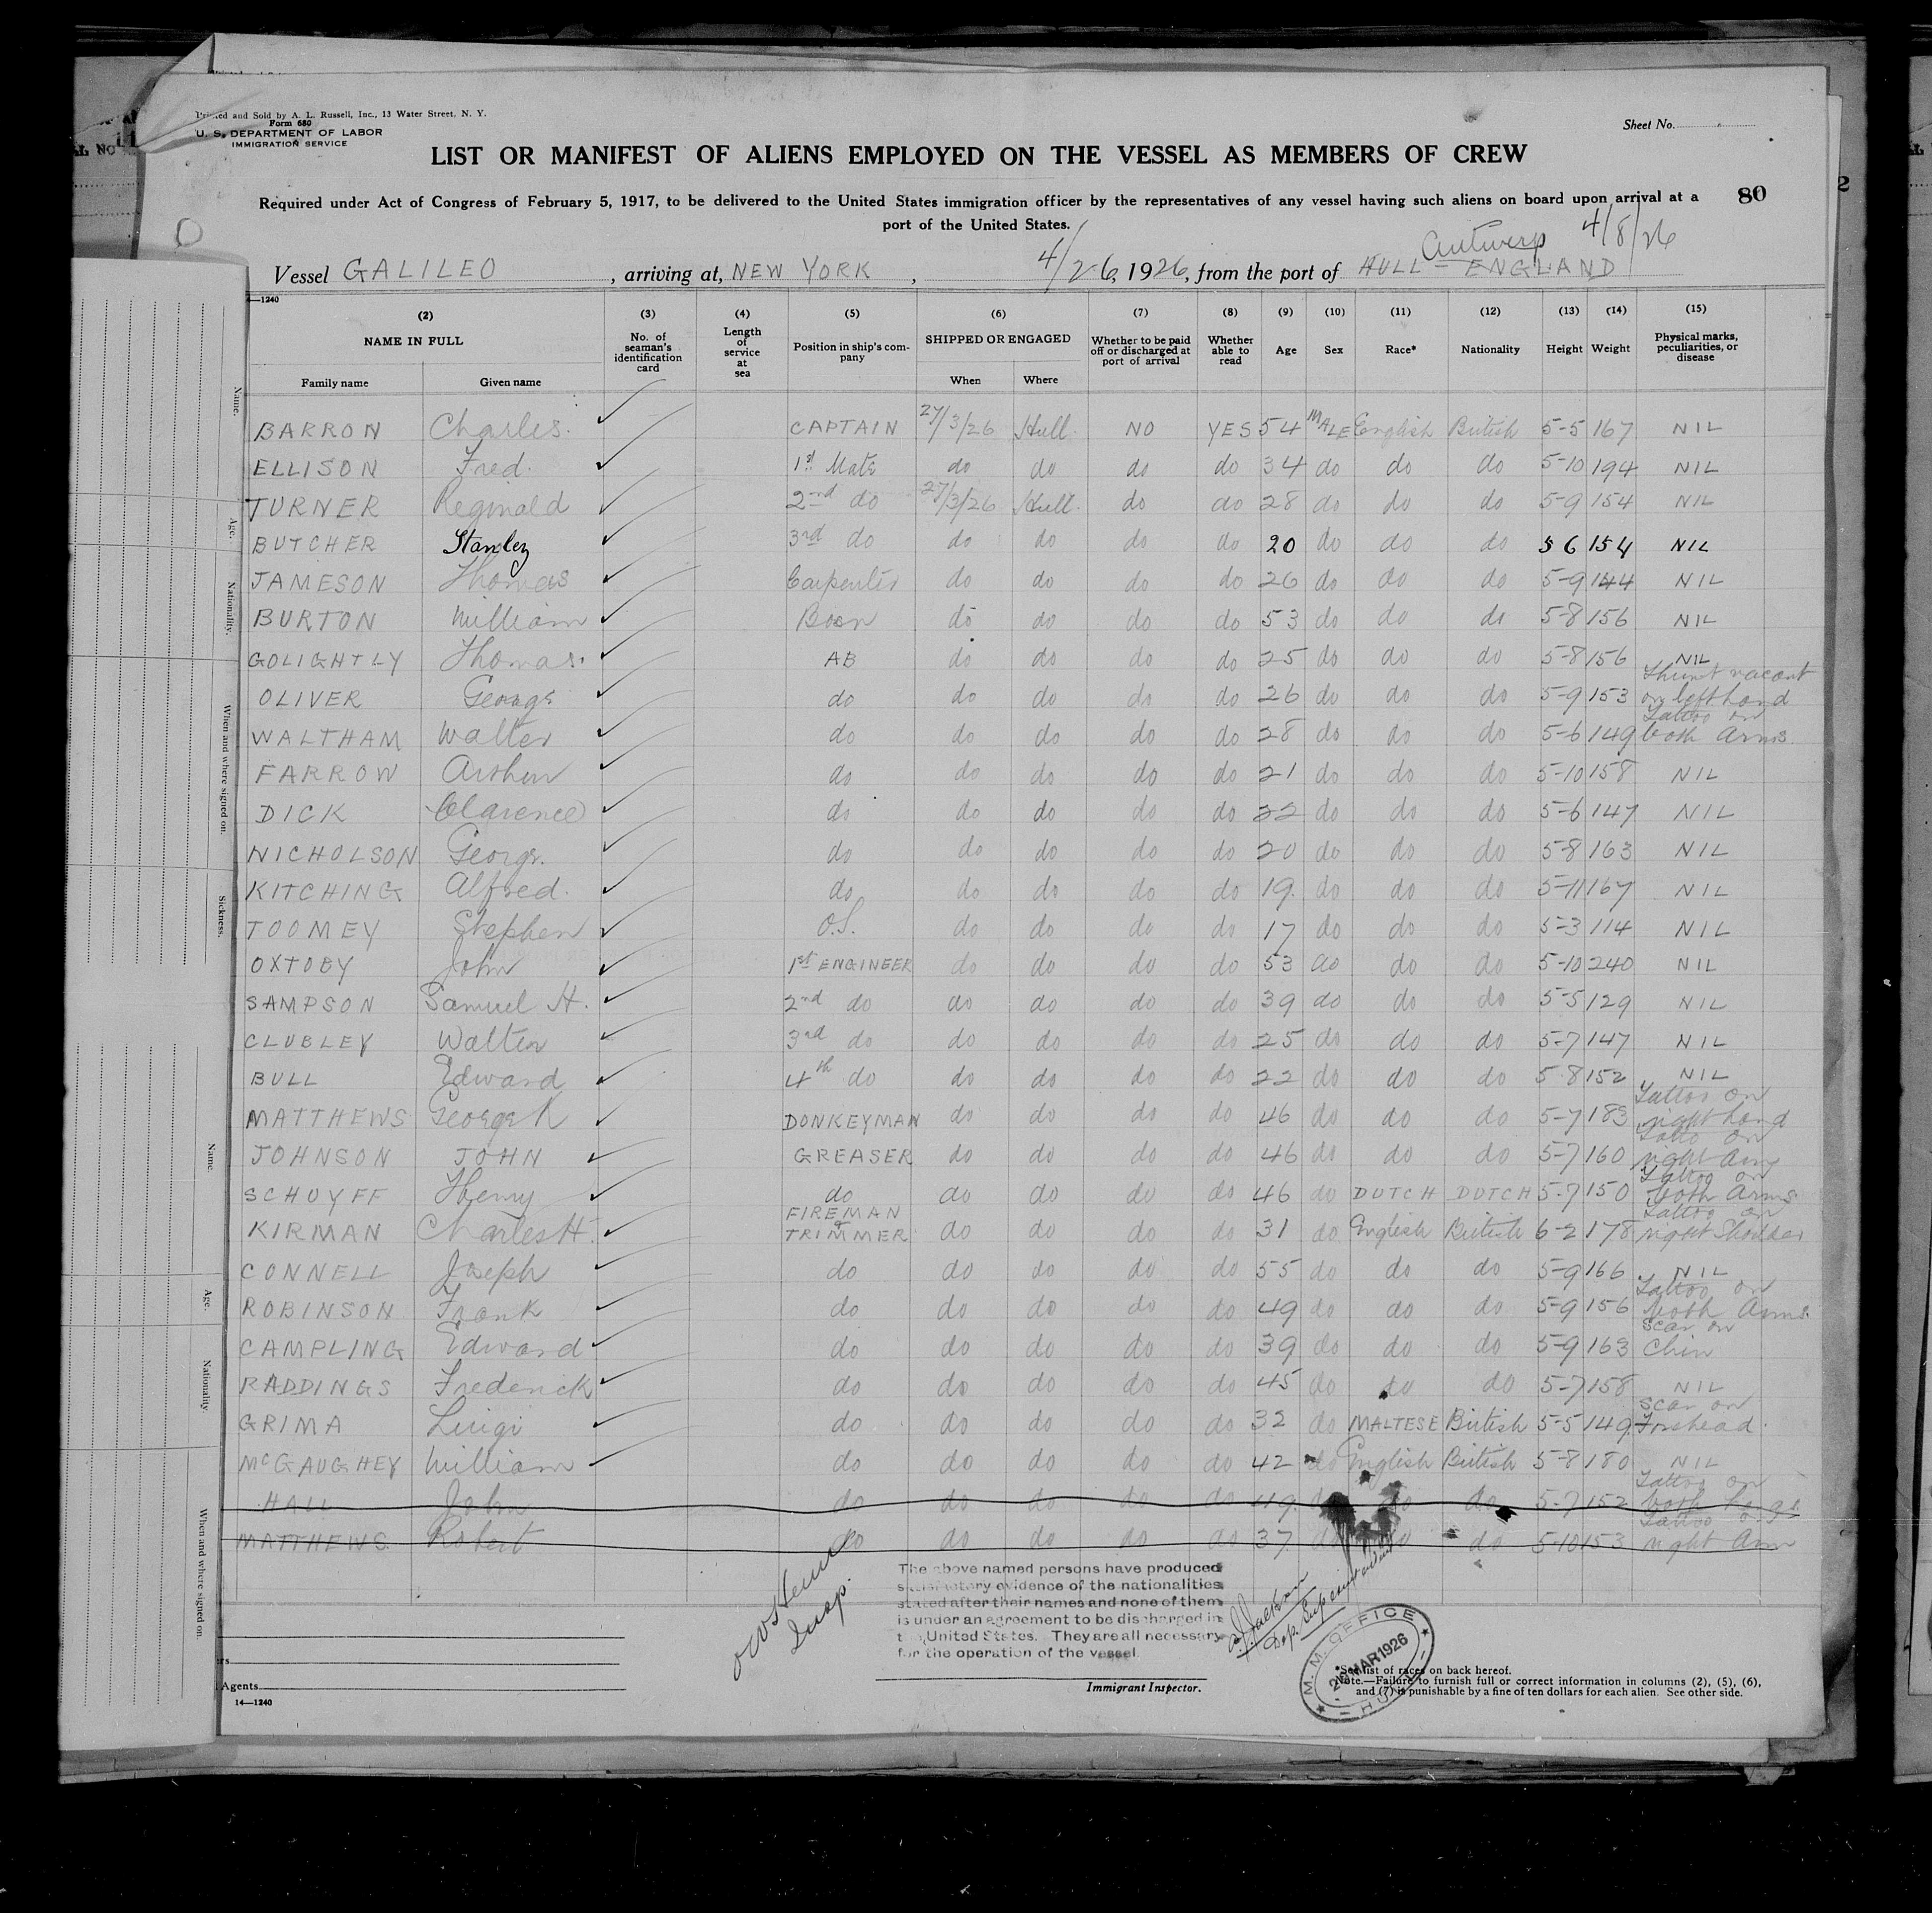 Printed and Sold by A. L. Russell, Inc., 13 Water Street, N. Y.
Form 680
U. S. DEPARTMENT OF LABOR
IMMIGRATION SERVICE
Sheet No.
LIST OR MANIFEST OF ALIENS EMPLOYED ON THE VESSEL AS MEMBERS OF CREW
Required under Act of Congress of February 5, 1917, to be delivered to the United States immigration officer by the representatives of any vessel having such aliens on board upon arrival at a
port of the United States.
80
Antwerp 4/8/26
Vessel GALILEO, arriving at, NEW YORK, 4/26, 1926, from the port of HULL - ENGLAND
14—1240
(2) (3) (4) (5) (6) (7) (8) (9) (10) (11) (12) (13) (14) (15)
NAME IN FULL No. of seaman's identification card Length of service at sea Position in ship's company SHIPPED OR ENGAGED Whether to be paid off or discharged at port of arrival Whether able to read Age Sex Race* Nationality Height Weight Physical marks, peculiarities, or disease
Family name Given name When Where
BARRON Charles. CAPTAIN 27/3/26 Hull. NO YES 54 MALE English British 5-5 167 NIL
ELLISON Fred. 1st Mate do do do do 34 do do do 5-10 194 NIL
TURNER Reginald 2nd do 27/3/26 Hull. do do 28 do do do 5-9 154 NIL
BUTCHER Stanley 3rd do do do do do 20 do do do 5 6 154 NIL
JAMESON Thomas Carpenter do do do do 26 do do do 5-9 144 NIL
BURTON William Bosn do do do do 53 do do do 5-8 156 NIL
GOLIGHTLY Thomas. AB do do do do 25 do do do 5-8 156 NIL
OLIVER George do do do do do 26 do do do 5-9 153 on left hand
WALTHAM Walter do do do do do 28 do do do 5-6 149 Tattoo on both Arms
FARROW Arthur do do do do do 21 do do do 5-10 158 NIL
DICK Clarence do do do do do 22 do do do 5-6 147 NIL
NICHOLSON George. do do do do do 20 do do do 5-8 163 NIL
KITCHING Alfred. do do do do do 19. do do do 5-11 167 NIL
TOOMEY Stephen O.S. do do do do 17 do do do 5-3 114 NIL
OXTOBY John 1st ENGINEER do do do do 53 do do do 5-10 240 NIL
SAMPSON Samuel H. 2nd do do do do do 39 do do do 5-5 129 NIL
CLUBLEY Walter 3rd do do do do do 25 do do do 5-7 147 NIL
BULL Edward 4th do do do do do 22 do do do 5-8 152 NIL
MATTHEWS George K DONKEYMAN do do do do 46 do do do 5-7 183 Tattoo on right hand
JOHNSON JOHN GREASER do do do do 46 do do do 5-7 160 Tatto on right Arm
SCHUYFF Henry do do do do do 46 do DUTCH DUTCH 5-7 150 Tattoo on both Arms.
KIRMAN Charles H. FIREMAN & TRIMMER do do do do 31 do English British 6-2 178 Tattoo on right Shoulder
CONNELL Joseph do do do do do 55 do do do 5-9 166 NIL
ROBINSON Frank do do do do do 49 do do do 5-9 156 Tattoo on both Arms.
CAMPLING Edward do do do do do 39 do do do 5-9 163 Scar on Chin
RADDINGS Frederick do do do do do 45 do do do 5-7 158 NIL
GRIMA Luigi do do do do do 32 do MALTESE British 5-5 149 Scar on Forehead.
McGAUGHEY William do do do do do 42 do English British 5-8 180 NIL
HALL John do do do do do 49. do do do 5-7 152 Tattoo on both
MATTHEWS. Robert do do do do do 37 do do do 5-10 153 Tattoo on right Arm
Insp.
The above named persons have produced
satisfactory evidence of the nationalities
stated after their names and none of them
is under an agreement to be discharged in
the United States. They are all necessary
for the operation of the vessel.
Jackson
Dep. Superintendent
M. M. OFFICE
MAR 1926
HULL
Immigrant Inspector.
Agents
14—1240
*See list of races on back hereof.
Note.—Failure to furnish full or correct information in columns (2), (5), (6),
and (7) is punishable by a fine of ten dollars for each alien. See other side.
Name.
Age.
Nationality.
When and where signed on.
Sickness.
Name.
Age.
Nationality.
When and where signed on.